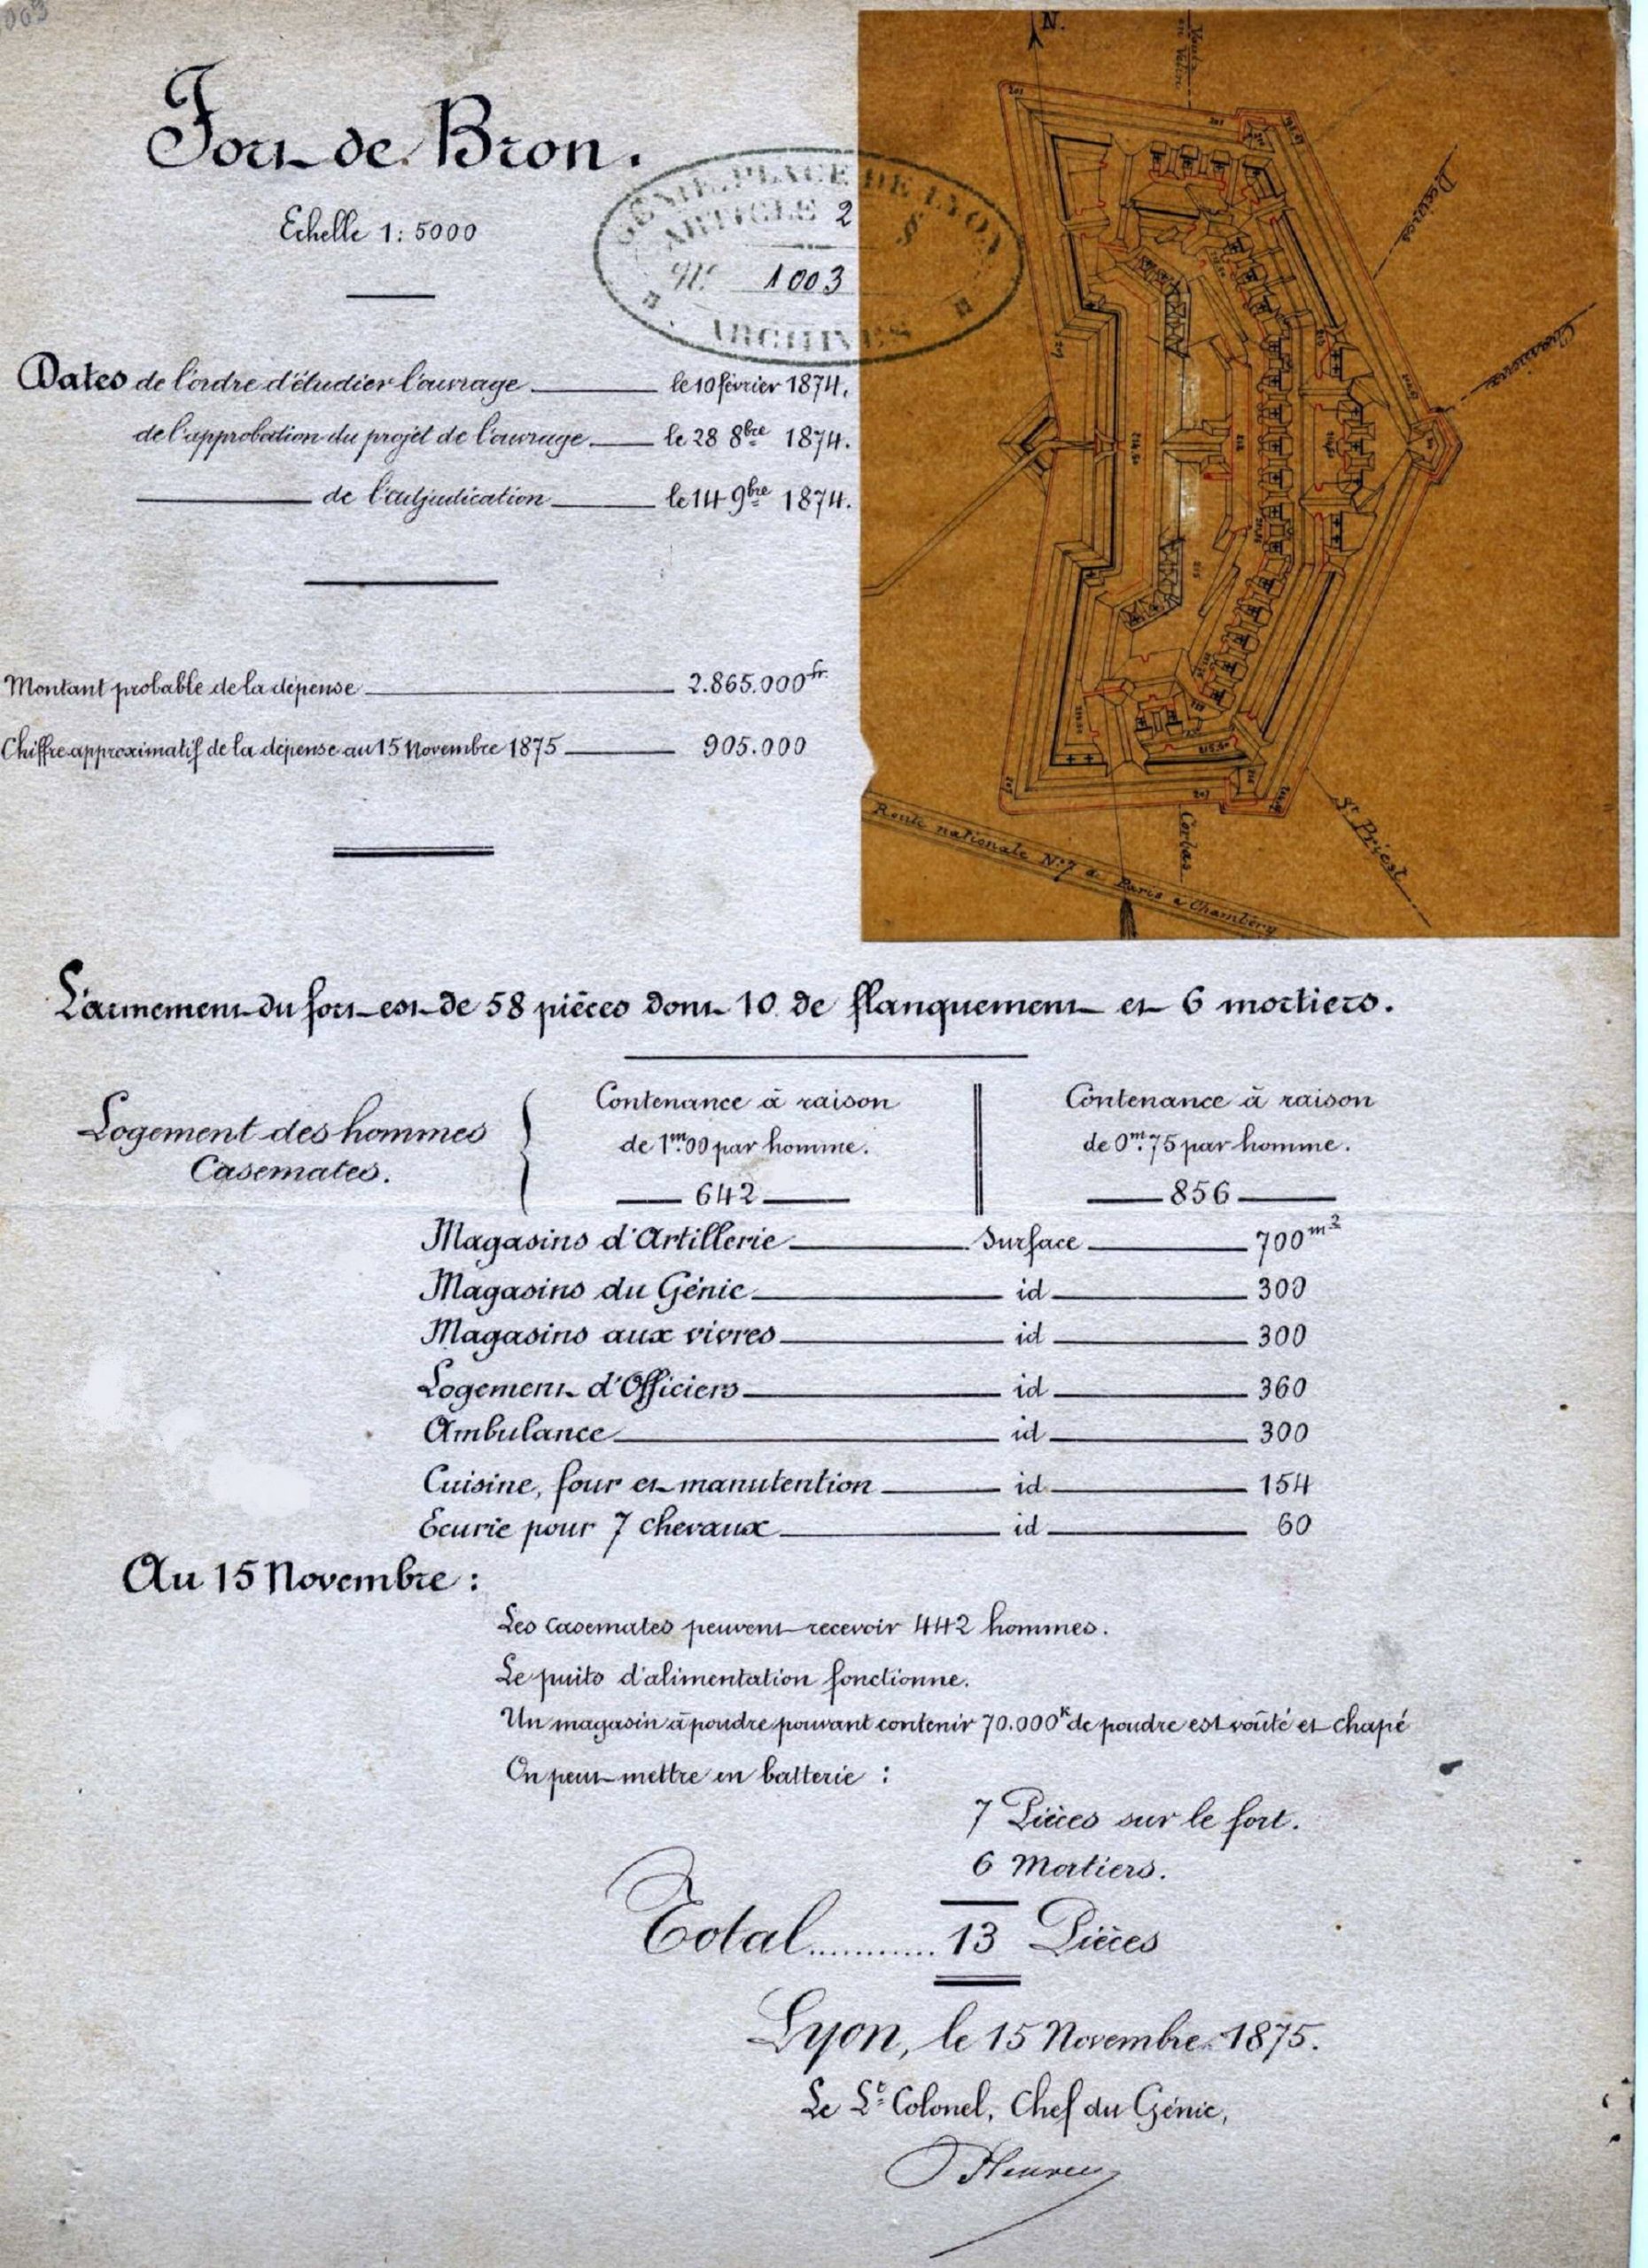 003
Fort de Bron.
Echelle 1:5000
GÉNIE. PLACE DE LYON
ARTICLE 2 §
N° 1003
ARCHIVES
Dates de l'ordre d'étudier l'ouvrage le 10 février 1874.
de l'approbation du projet de l'ouvrage le 28 8bre 1874.
de l'adjudication le 14 9bre 1874.
Montant probable de la dépense 2.865.000fr.
Chiffre approximatif de la dépense au 15 Novembre 1875 905.000
N.
Decines
Chassieux
St Priest
Corbas
Route nationale N°7 de Paris à Chambéry
L'armement du fort est de 58 pièces dont 10 de flanquement et 6 mortiers.
Logement des hommes
Casemates.
Contenance à raison
de 1m.00 par homme.
642
Contenance à raison
de 0m.75 par homme.
856
Magasins d'Artillerie Surface 700m2
Magasins du Génie id 300
Magasins aux vivres id 300
Logement d'Officiers id 360
Ambulance id 300
Cuisine, four et manutention id 154
Ecurie pour 7 chevaux id 60
Au 15 Novembre :
Les Casemates peuvent recevoir 442 hommes.
Le puits d'alimentation fonctionne.
Un magasin à poudre pouvant contenir 70.000k de poudre est voûté et chapé
On peut mettre en batterie :
7 Pièces sur le fort.
6 Mortiers.
Total........... 13 Pièces
Lyon, le 15 Novembre 1875.
Le Lt Colonel, Chef du Génie,